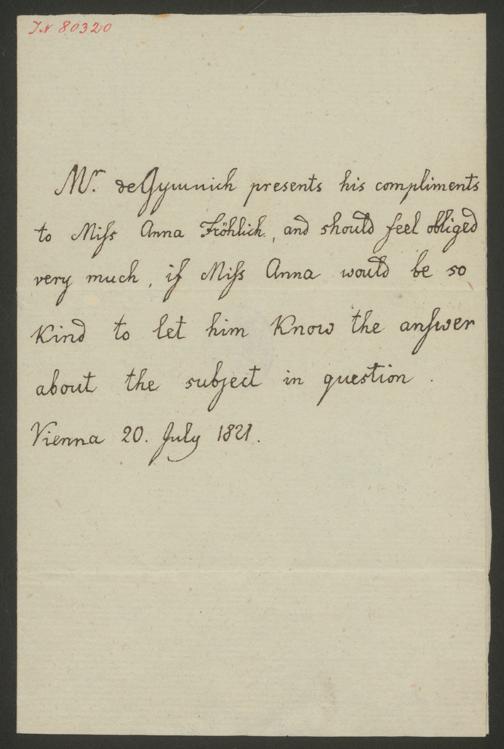 I.N 80320
Mr. de Gymnich presents his compliments
to Miſs Anna Fröhlich, and should feel obliged
very much, if Miſs Anna would be so
kind to let him know the anſwer
about the subject in question.
Vienna 20. July 1821.